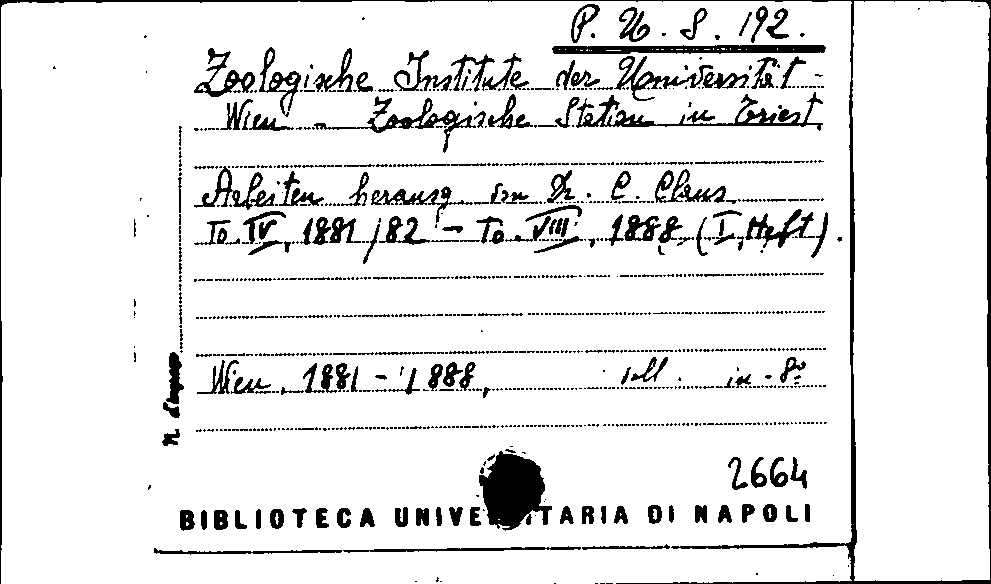 P. U. S. 192.
Zoologische Institute der Universität -
Wien - Zoologische Station in Triest.
Arbeiten herausg von Dr. C. Claus
To. IV, 1881/82 - To. VIII, 1888 (I, Heft).
Wien, 1881 - 1888, in - 8º
N. d'ingresso
2664
BIBLIOTECA UNIVERSITARIA DI NAPOLI